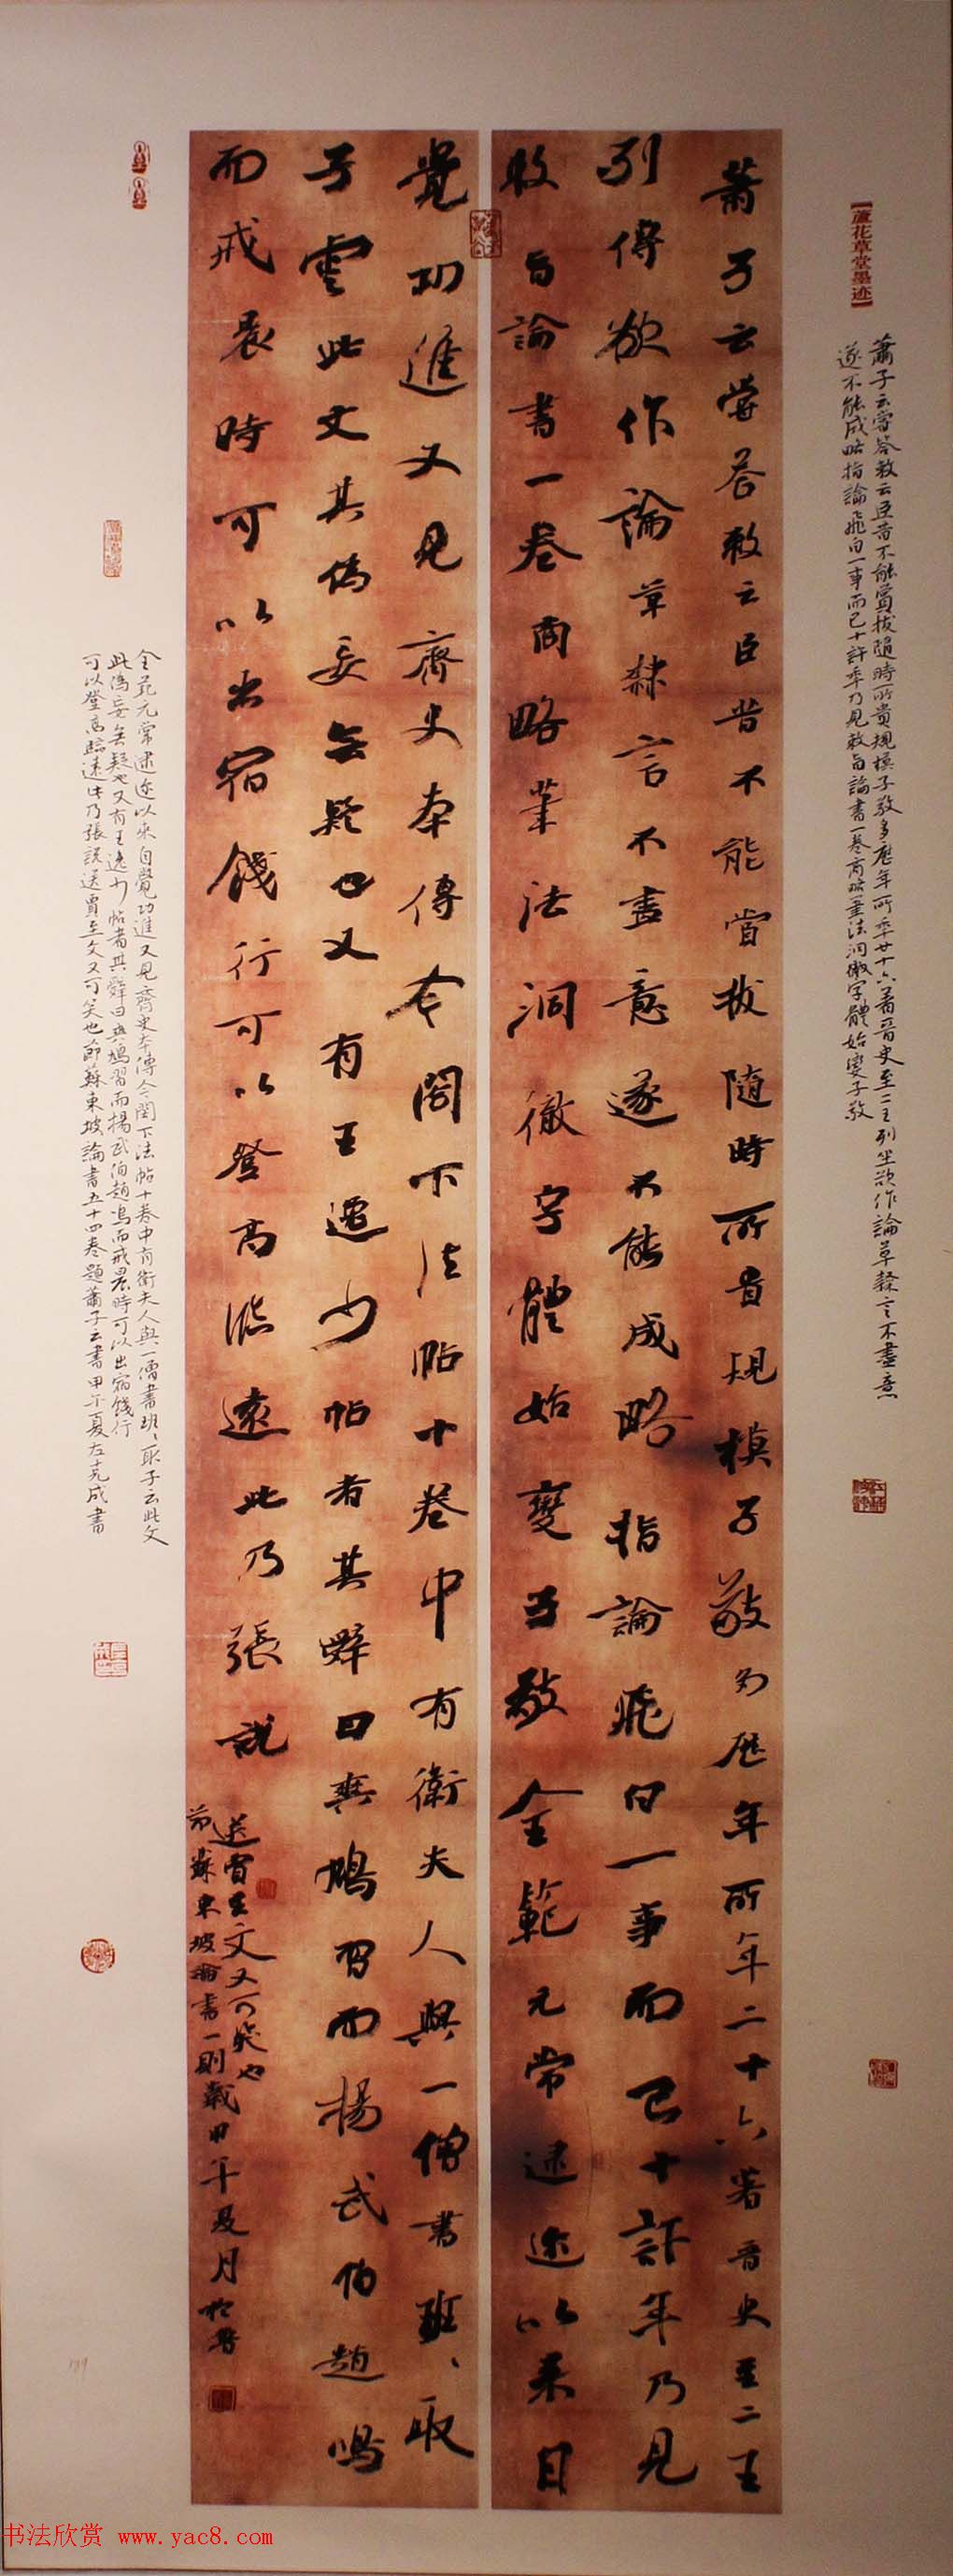 【蘆花草堂墨迹】
蕭子云嘗答敕云臣昔不能賞拔隨時所貴規模子敬多歷年所年廿十六著晋史至二王列坐欲作論草隸言不盡意
遂不能成略指論飛白一事而已十許年乃見敕旨論書一卷商略筆法洞徹字體始變子敬
蕭子云嘗答敕云臣昔不能賞拔隨時所貴規模子敬多歷年所年二十六著晋史至二王
列傳欲作論草隸言不盡意遂不能成略指論飛白一事而已十許年乃見
敕旨論書一卷商略筆法洞徹字體始變子敬全範元常逮迩以來自
覺功進又見齊史本傳今閣下法帖十卷中有衛夫人與一僧書班、取
子雲此文其偽妄無疑也又有王逸少帖者其辞曰與鳩習而楊武伯趙鳴
而戒晨時可以出宿餞行可以登高臨遠此乃張説
送賈至文又可笑也
節蘇東坡論書一則歲甲午夏月
全範元常逮迩以來自覺功進又見齊史本傳今閣下法帖十卷中有衛夫人與一僧書班、取子云此文
此偽妄無疑也又有王逸少帖者其辞曰與鳩習而楊武伯趙鳴而戒晨時可以出宿餞行
可以登高臨遠此乃張説送賈至文又可笑也節蘇東坡論書五十四卷題蕭子云書甲午夏左克成書
书法欣赏 www.yac8.com